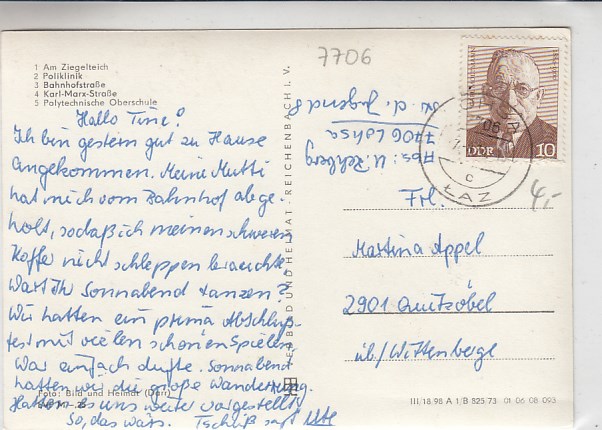 1 Am Ziegelteich
2 Poliklinik
3 Bahnhofstraße
4 Karl-Marx-Straße
5 Polytechnische Oberschule
Hallo Tine!
Ich bin gestern gut zu Hause
angekommen. Meine Mutti
hat mich vom Bahnhof abge-
holt, sodaß ich meinen schweren
Koffer nicht schleppen brauchte.
Wart Ihr Sonnabend tanzen?
Wir hatten ein prima Abschluß-
fest mit vielen schönen Spielen.
War einfach dufte. Sonnabend
hatten wir die große Wanderung.
Hatten es uns weiter vorgestellt
So, das wärs. Tschüß sagt Ute
Foto: Bild und Heimat (Darr)
BILD UND HEIMAT · REICHENBACH I. V.
7706
Abs: U. Rehberg
7706 Lohsa
Str. d. Jugend 8
DDR 10
c
ŁAZ
4,-
Frl.
Martina Appel
2901 Quitzöbel
üb/Wittenberge
III/18/98 A 1/B 825/73 01 06 08 093